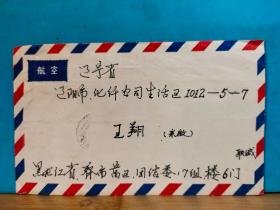 航空
辽宁省
辽阳市、化纤公司生活区1012-5-7
王翔（亲启）
黑龙江省齐市富区、团结委、17组楼6门